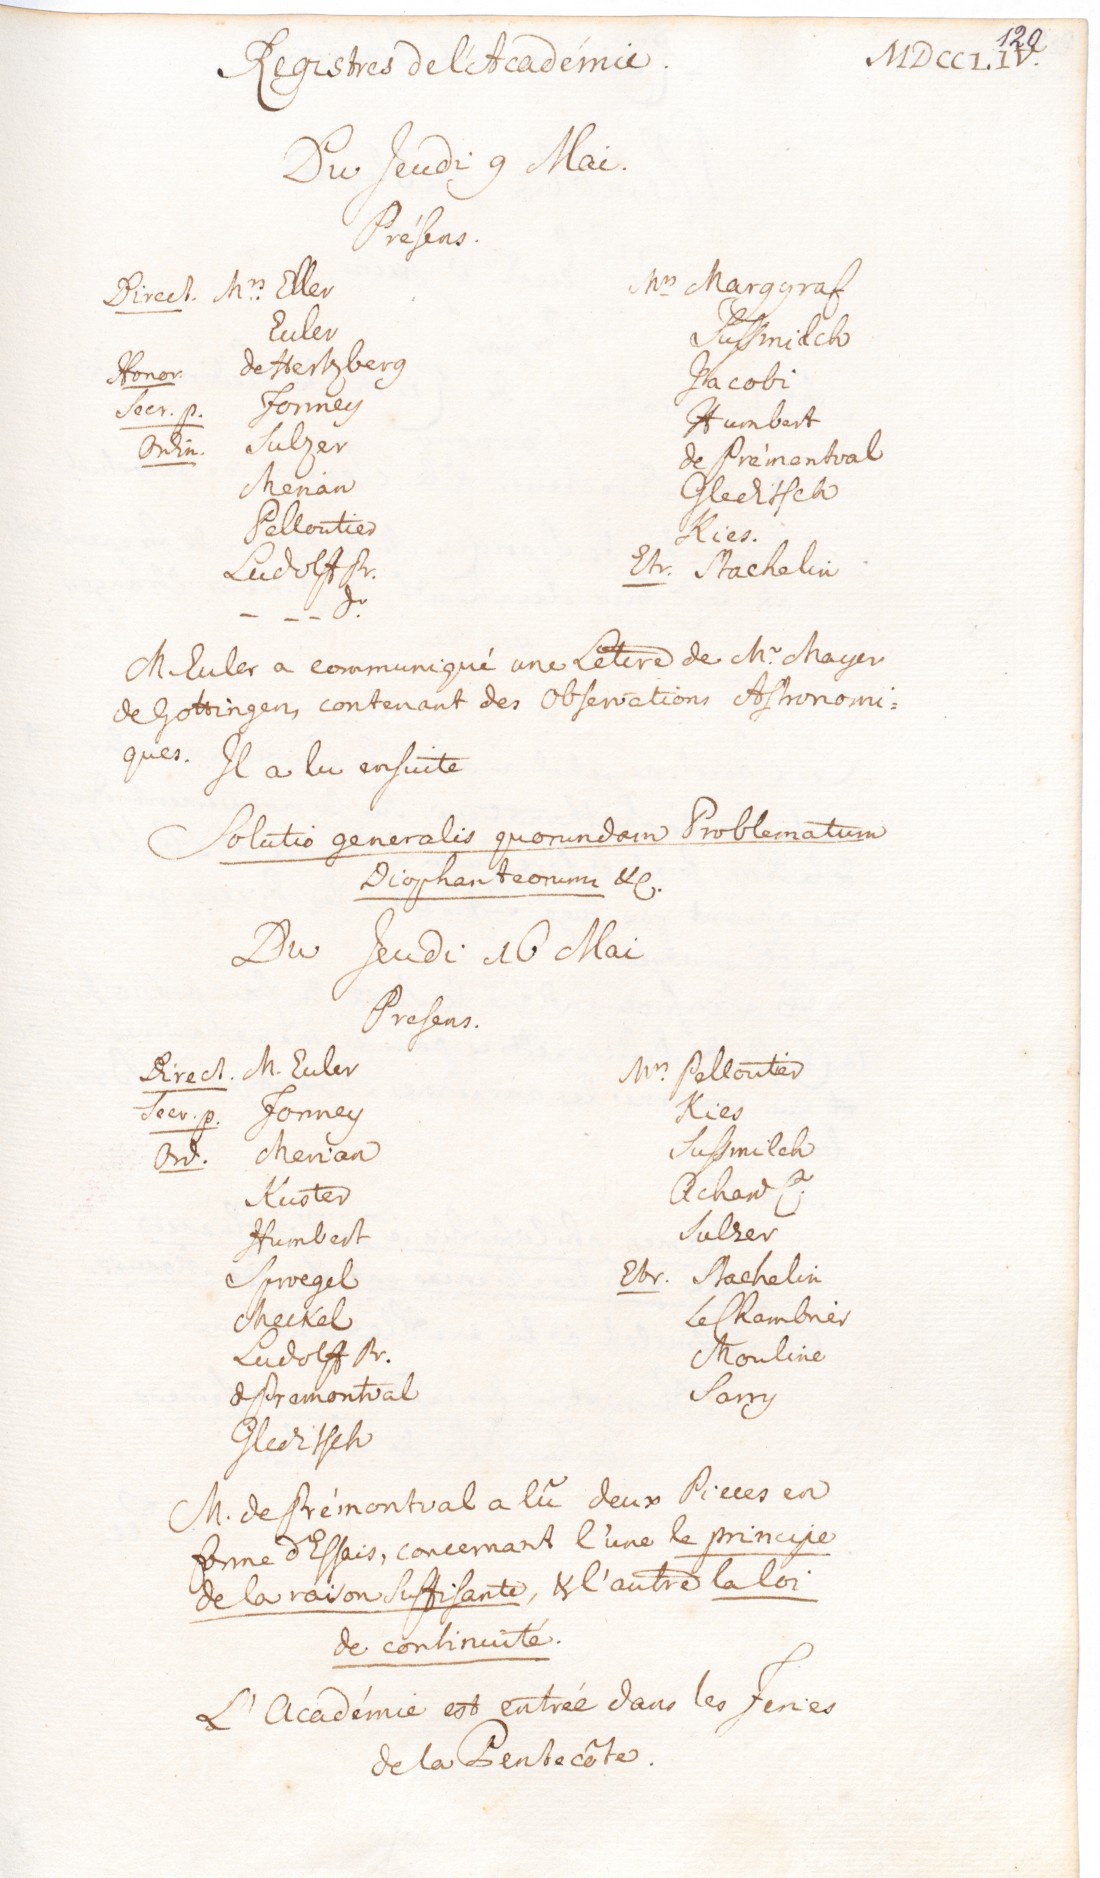 120
Registres de l'Académie. MDCCLIV.
Du Jeudi 9 Mai.
Présens.
Direct. Mrs. Eller
Euler
Honor. de Hertzberg
Secr. p. Formey
Ordin. Sulzer
Merian
Pelloutier
Ludolff Pr.
_ _ _ Dr
Mrs Marggraf
Sussmilch
Jacobi
Humbert
de Prémontval
Gleditsch
Kies.
Etr. Stachelin
M. Euler a communiqué une Lettre de Mr. Mayer
de Gottingen, contenant des Observations Astronomi=
ques. Il a lu ensuite
Solutio generalis quorundam Problematum
Diophanteorum &c.
Du Jeudi 16 Mai
Presens.
Direct. M. Euler
Secr. p. Formey
Ord. Merian
Kuster
Humbert
Sproegel
Meckel
Ludolff Pr.
de Premontval
Gleditsch
Mrs. Pelloutier
Kies
Sussmilch
Achard
Sulzer
Etr. Stachelin
Le Chambrier
Mouline
Sarry
M. de Prémontval a lû deux Pieces en
forme d'Essais, concernant l'une le principe
de la raison suffisante, & l'autre la loi
de continuité.
L'Académie est entrée dans les Feries
de la Pentecôte.